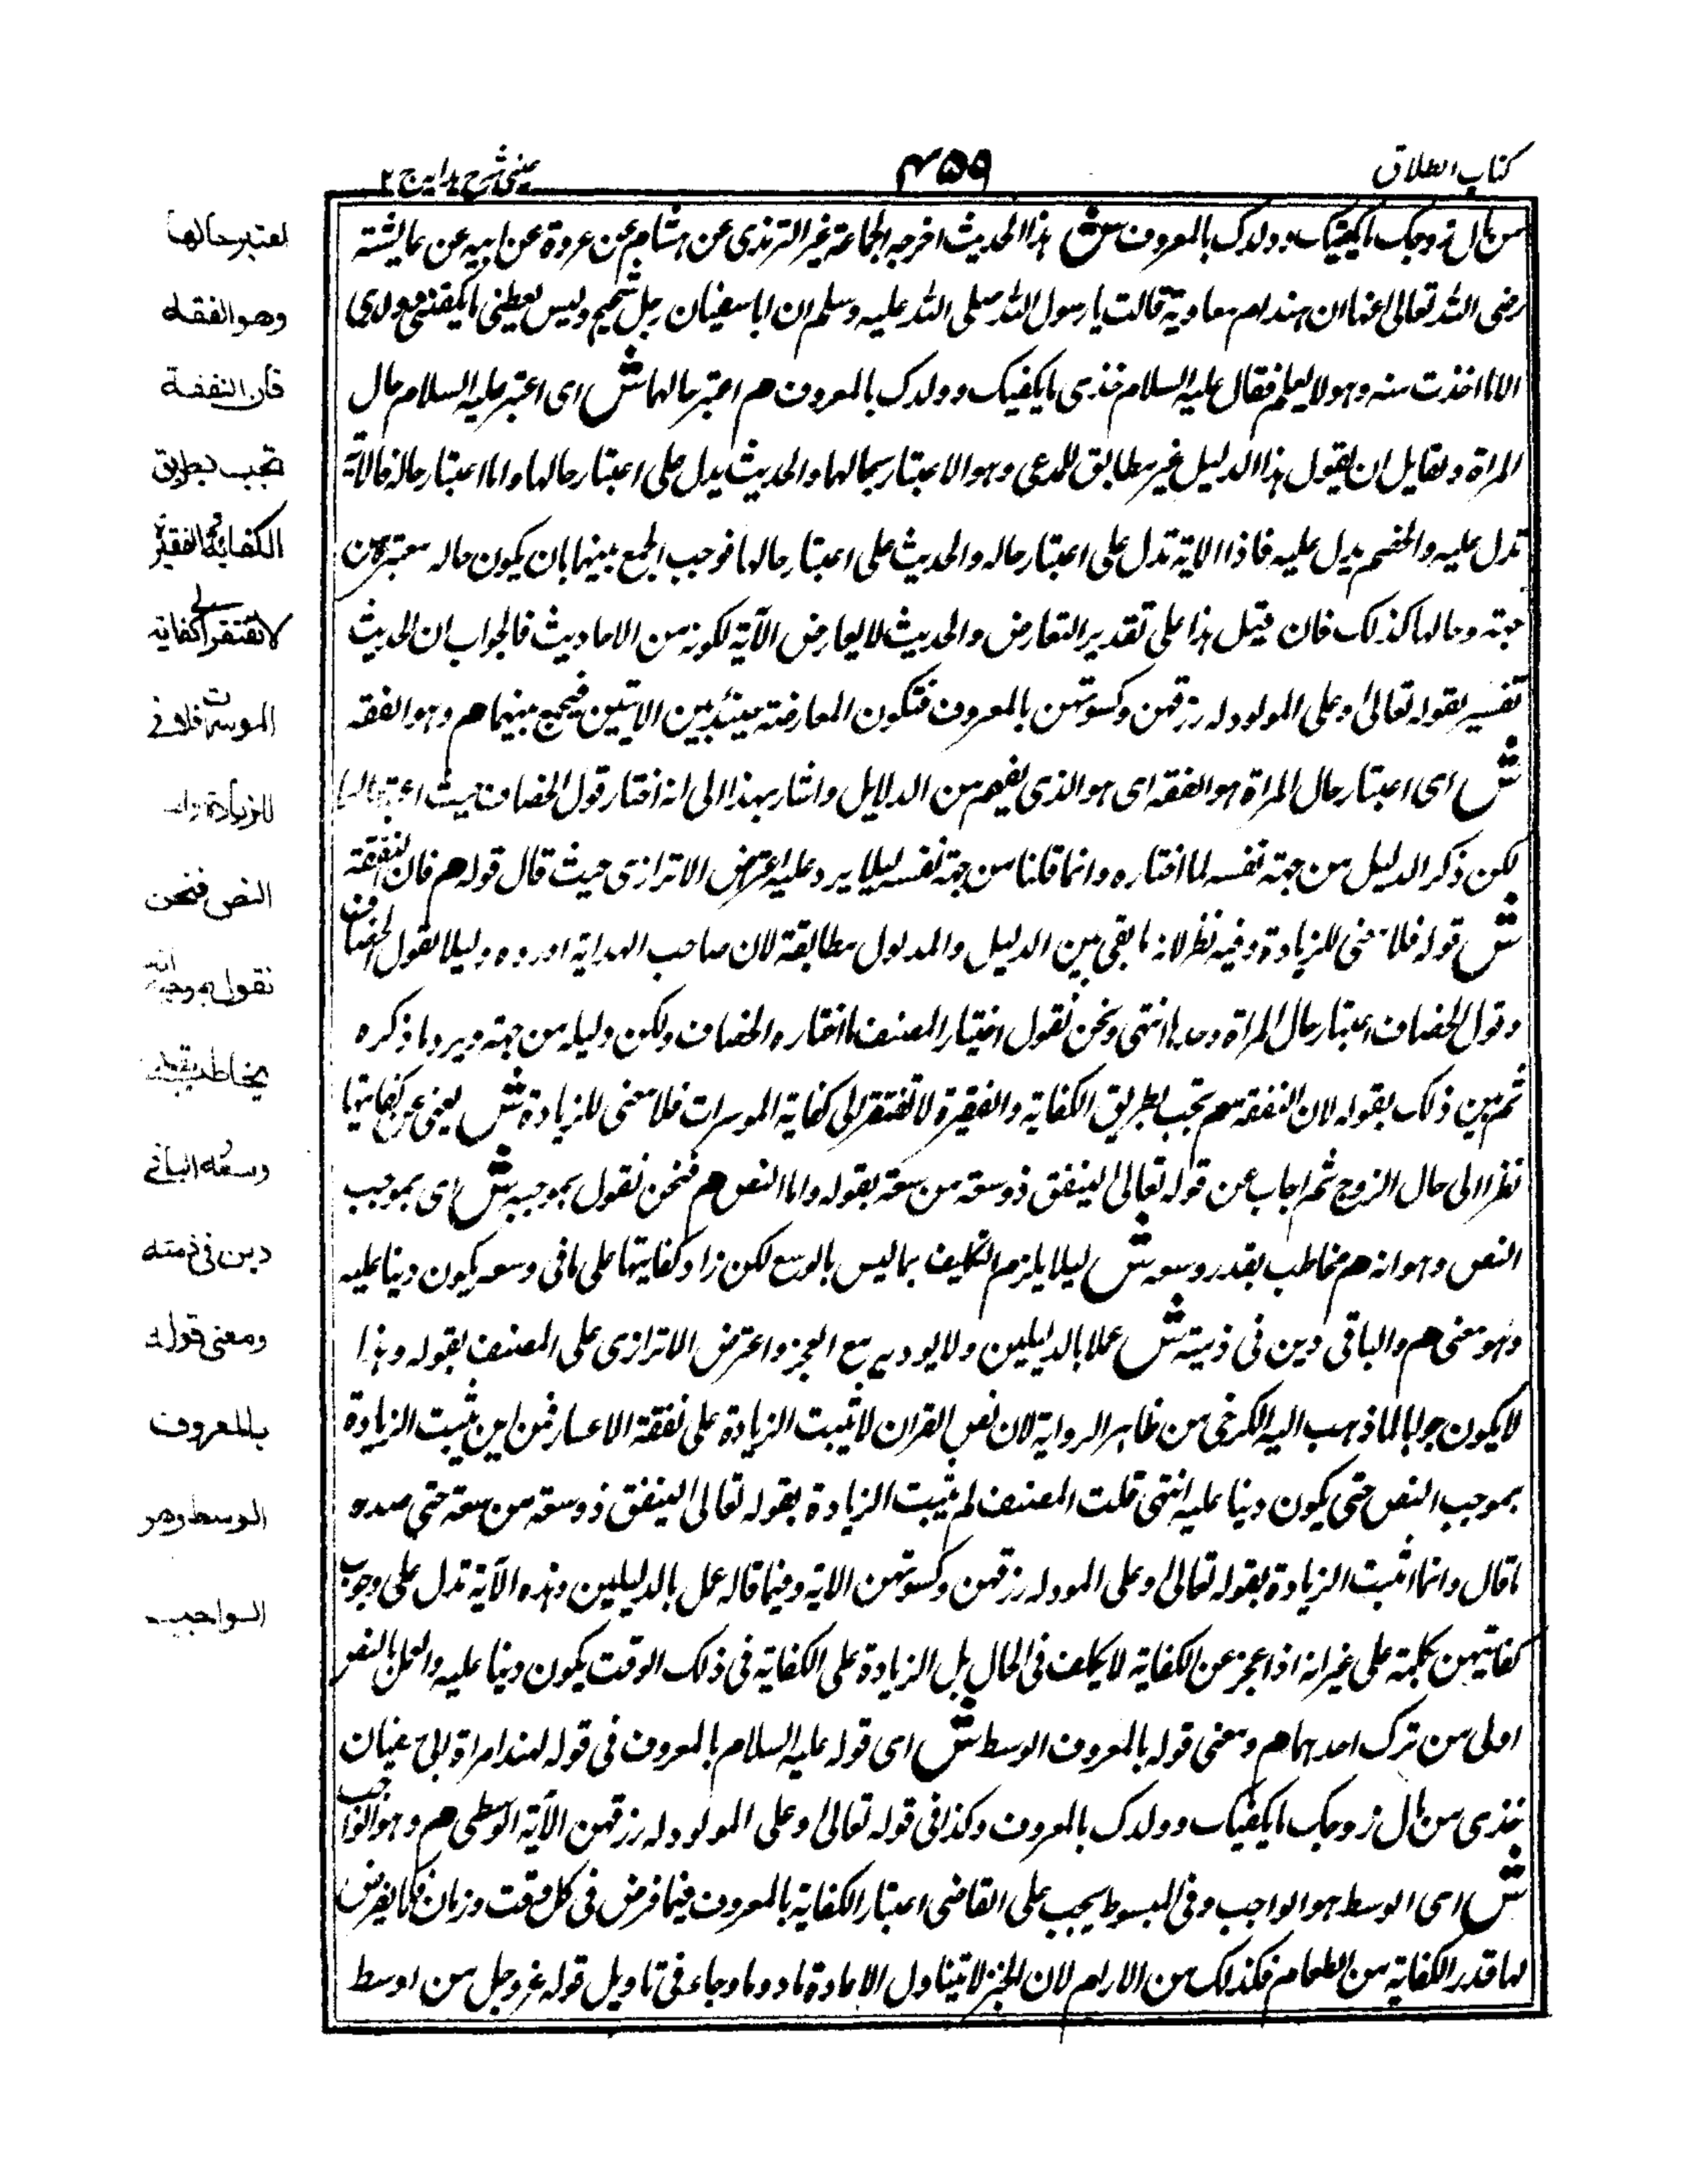 كتاب الطلاق
٤٥٩
عینی شرح هدایه ج ٢
من مال زوجك ما يكفيك وولدك بالمعروف ش هذا الحديث اخرجه الجماعة غير الترمذى عن هشام عن عروة عن ابيه عن عايشة
رضى الله تعالى عنها ان هندا ام معاوية قالت يا رسول الله صلى الله عليه وسلم ان ابا سفيان رجل شحيح وليس يعطينى ما يكفينى وولدى
الا ما اخذت منه وهو لا يعلم فقال عليه السلام خذى ما يكفيك وولدك بالمعروف م اعتبر حالها ش اى اعتبر عليه السلام حال
المراة ولقايل ان يقول هذا الدليل غير مطابق للمدعى وهو الاعتبار بحالهما والحديث يدل على اعتبار حالها واما اعتبار حاله فالآية
تدل عليه والخصم يدل عليه فاذا الاية تدل على اعتبار حاله والحديث على اعتبار حالها فوجب الجمع بينهما بان يكون حاله معتبرة من
جهته وحالها كذلك فان قيل هذا على تقدير التعارض والحديث لا يعارض الآية لكونه من الاحاديث فالجواب ان الحديث
تفسير لقوله تعالى وعلى المولود له رزقهن وكسوتهن بالمعروف فتكون المعارضة حينئذ بين الايتين فيجمع بينهما م وهو الفقه
ش اى اعتبار حال المراة هو الفقه اى هو الذى يفهم من الدلايل واشار بهذا الى انه اختار قول الخصاف حيث اعتبر حالها
لكن ذكر الدليل من جهة نفسه لما اختاره وانما قلنا من جهة نفسه ليلا يرد عليه اعتراض الاترازى حيث قال قوله م فان النفقة
ش قوله فلا معنى للزيادة وفيه نظر لانه ما بقى بين الدليل والمدلول مطابقة لان صاحب الهداية اورده دليلا لقول الخصاف
وقول الخصاف اعتبار حال المراة وحدها انتهى ونحن نقول اختيار المصنف ما اختاره الخصاف ولكن دليله من جهته ويرد ما ذكره
ثم بين ذلك بقوله لان النفقة م تجب بطريق الكفاية والفقيرة لا تفتقر الى كفاية الموسرات فلا معنى للزيادة ش يعنى عن كفايتها
نظرا الى حال الزوج ثم اجاب عن قوله تعالى لينفق ذو سعة من سعة بقوله واما النص م فنحن نقول بموجبه ش اى بموجب
النص وهو انه م مخاطب بقدر وسعه ش ليلا يلزم التكليف بما ليس بالوسع لكن زاد كفايتها على ما فى وسعه يكون دينا عليه
وهو معنى م والباقى دين فى ذمته ش عملا بالدليلين ولا يوديه مع العجز واعترض الاترازى على المصنف بقوله وهذا
لا يكون جوابا لما ذهب اليه الكرخى من ظاهر الرواية لان نص القران لا يثبت الزيادة على نفقة الاعسار فمن اين يثبت الزيادة
بموجب النص حتى يكون دينا عليه انتهى قلت المصنف لم يثبت الزيادة بقوله تعالى لينفق ذو سعة من سعة حتى
ما قال وانما اثبت الزيادة بقوله تعالى وعلى المود له رزقهن وكسوتهن الاية وفيما قاله عمل بالدليلين وهذه الآية تدل على وجوب
كفايتهن على غير انه اذا عجز عن الكفاية لا يكلف فى الحال بل الزيادة على الكفاية فى ذلك الوقت يكون دينا عليه والعمل بالنص
اولى من ترك احدهما م ومعنى قوله بالمعروف الوسط ش اى قوله عليه السلام بالمعروف فى قوله لهند امراة ابى سفيان
خذى من مال زوجك ما يكفيك وولدك بالمعروف وكذا فى قوله تعالى وعلى المولود له رزقهن الآية الوسطى م وهو الواجب
ش اى الوسط هو الواجب وفى المبسوط يجب على القاضى اعتبار الكفاية بالمعروف فيما فرض فى كل وقت وزمان فكما يفرض
لها قدر الكفاية من الطعام فكذلك من الادام لان الخبز لا يتناول الا مادوما وجاء فى تاويل قوله عز وجل من اوسط
لعتبر حالها
وهو الفقه
فان النفقة
تجب بطريق
الكفاية والفقيرة
لا تفتقر الى كفاية
الموسرات فلا معنى
للزيادة واما
النص فنحن
نقول بموجبه انه
يخاطب بقدر
وسعه الباقى
دين فى ذمته
ومعنى قوله
بالمعروف
الوسط وهو
الواجب